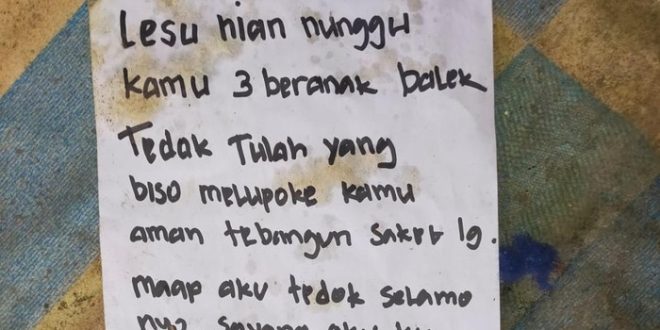 Lesu nian nunggu
kamu 3 beranak balek
Tedak Tulah yang
biso melupoke kamu
aman tebangun saket lg.
maap aku tedok selamo
nyo sayang aku